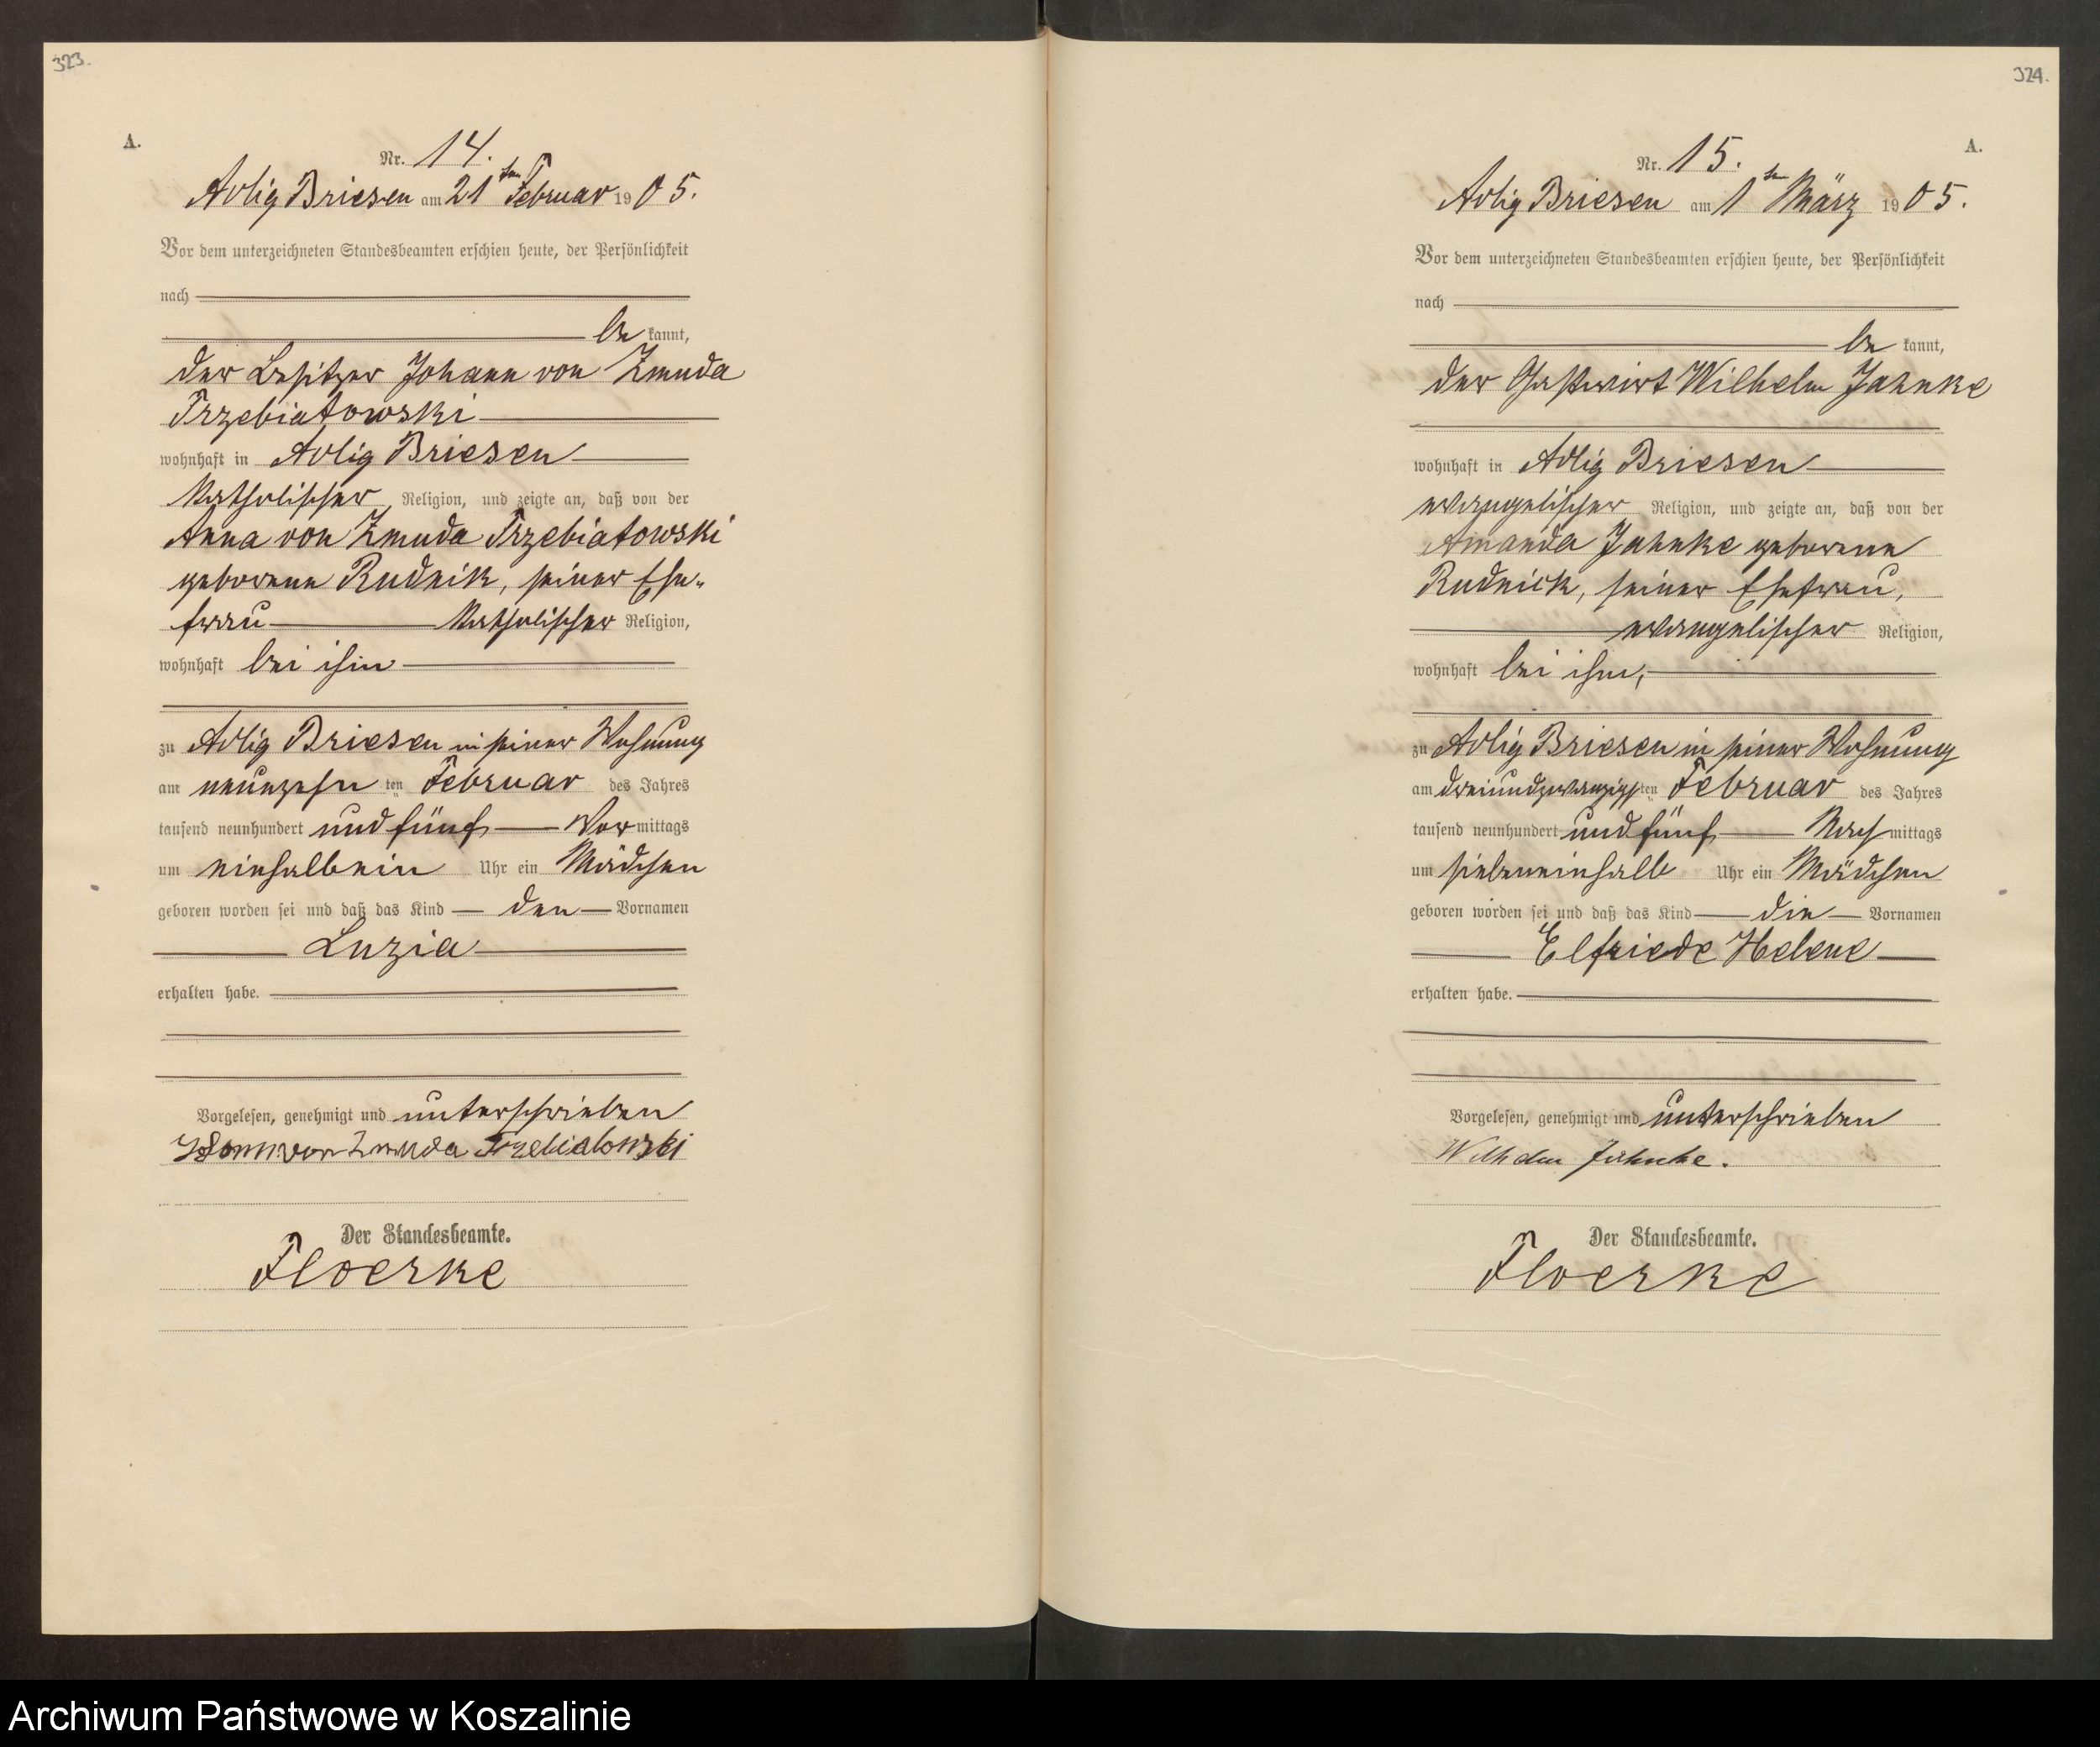 323.
A.
Nr. 14.
Adlig Briesen am 21ten Februar 1905.
Vor dem unterzeichneten Standesbeamten erschien heute, der Persönlichkeit
nach
be kannt,
der Besitzer Johann von Zmuda
Trzebiatowski
wohnhaft in Adlig Briesen
katholischer Religion, und zeigte an, daß von der
Anna von Zmuda Trzebiatowski
geborene Rudnik, seiner Ehe-
frau katholischer Religion,
wohnhaft bei ihm
zu Adlig Briesen in seiner Wohnung
am neunzehn ten Februar des Jahres
tausend neunhundert und fünf Vormittags
um einhalbein Uhr ein Mädchen
geboren worden sei und daß das Kind den Vornamen
Luzia
erhalten habe.
Vorgelesen, genehmigt und unterschrieben
Johann von Zmuda Trzebiatowski
Der Standesbeamte.
Floerke
324.
A.
Nr. 15.
Adlig Briesen am 1ten März 1905.
Vor dem unterzeichneten Standesbeamten erschien heute, der Persönlichkeit
nach
be kannt,
der Gastwirt Wilhelm Jahnke
wohnhaft in Adlig Briesen
evangelischer Religion, und zeigte an, daß von der
Amanda Jahnke geborene
Rudnick, seiner Ehefrau,
evangelischer Religion,
wohnhaft bei ihm,
zu Adlig Briesen in seiner Wohnung
am dreiundzwanzigsten Februar des Jahres
tausend neunhundert und fünf Nachmittags
um siebeneinhalb Uhr ein Mädchen
geboren worden sei und daß das Kind die Vornamen
Elfriede Helene
erhalten habe.
Vorgelesen, genehmigt und unterschrieben
Wilhelm Jahnke.
Der Standesbeamte.
Floerke
Archiwum Państwowe w Koszalinie